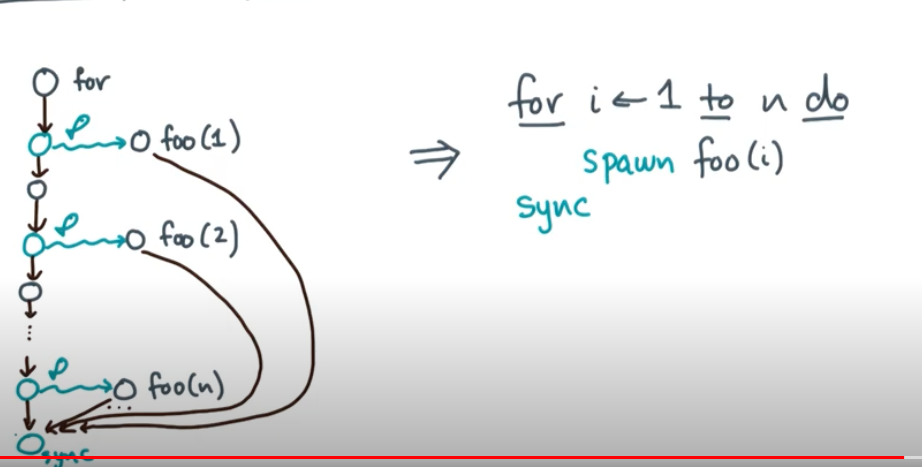 for
foo(1)
foo(2)
⋮
foo(n)
...
sync
⇒
for i ← 1 to n do
spawn foo(i)
sync